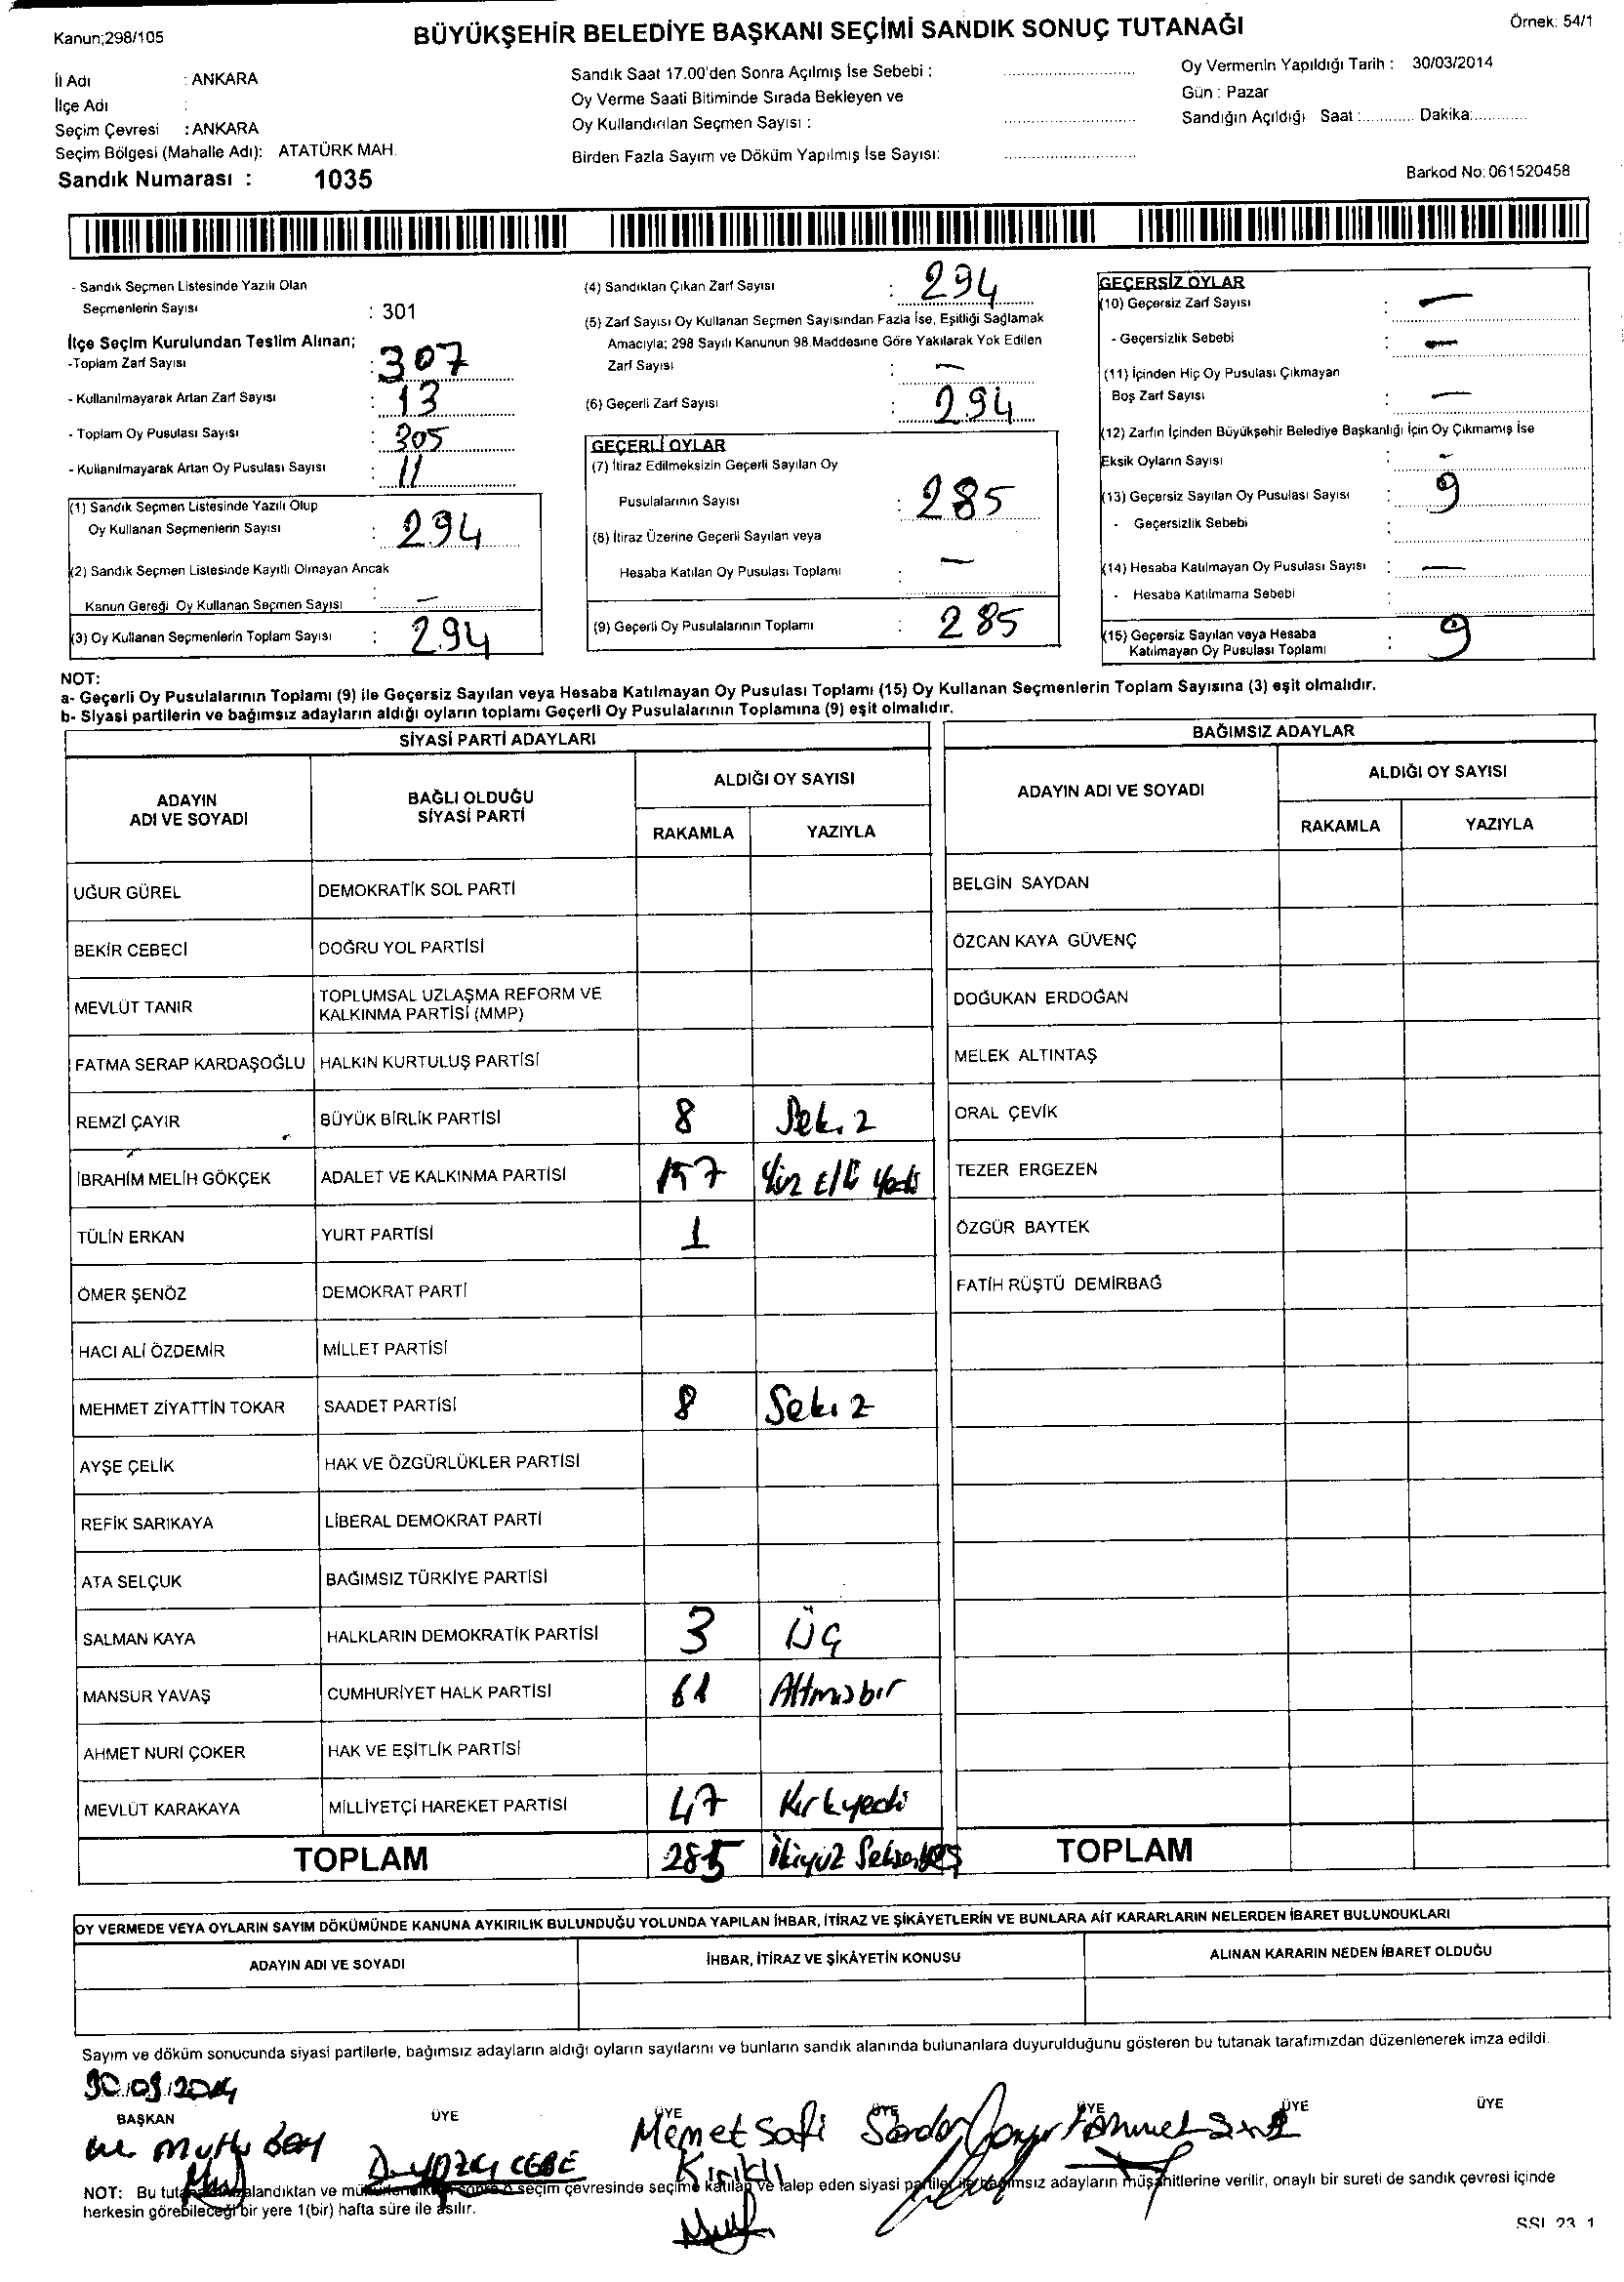 Kanun;298/105
BÜYÜKŞEHİR BELEDİYE BAŞKANI SEÇİMİ SANDIK SONUÇ TUTANAĞI
Örnek: 54/1
İl Adı : ANKARA
İlçe Adı :
Seçim Çevresi : ANKARA
Seçim Bölgesi (Mahalle Adı): ATATÜRK MAH.
Sandık Numarası : 1035
Sandık Saat 17.00'den Sonra Açılmış İse Sebebi :
Oy Verme Saati Bitiminde Sırada Bekleyen ve
Oy Kullandırılan Seçmen Sayısı :
Birden Fazla Sayım ve Döküm Yapılmış İse Sayısı:
Oy Vermenin Yapıldığı Tarih : 30/03/2014
Gün : Pazar
Sandığın Açıldığı Saat :............ Dakika:............
Barkod No: 061520458
- Sandık Seçmen Listesinde Yazılı Olan
Seçmenlerin Sayısı : 301
İlçe Seçim Kurulundan Teslim Alınan;
-Toplam Zarf Sayısı : 307
- Kullanılmayarak Artan Zarf Sayısı : 13
- Toplam Oy Pusulası Sayısı : 305
- Kullanılmayarak Artan Oy Pusulası Sayısı : 11
(1) Sandık Seçmen Listesinde Yazılı Olup
Oy Kullanan Seçmenlerin Sayısı : 294
(2) Sandık Seçmen Listesinde Kayıtlı Olmayan Ancak
Kanun Gereği Oy Kullanan Seçmen Sayısı : —
(3) Oy Kullanan Seçmenlerin Toplam Sayısı : 294
(4) Sandıktan Çıkan Zarf Sayısı : 294
(5) Zarf Sayısı Oy Kullanan Seçmen Sayısından Fazla İse, Eşitliği Sağlamak
Amacıyla; 298 Sayılı Kanunun 98.Maddesine Göre Yakılarak Yok Edilen
Zarf Sayısı : —
(6) Geçerli Zarf Sayısı : 294
GEÇERLİ OYLAR
(7) İtiraz Edilmeksizin Geçerli Sayılan Oy
Pusulalarının Sayısı : 285
(8) İtiraz Üzerine Geçerli Sayılan veya
Hesaba Katılan Oy Pusulası Toplamı : —
(9) Geçerli Oy Pusulalarının Toplamı : 285
GEÇERSİZ OYLAR
(10) Geçersiz Zarf Sayısı : —
- Geçersizlik Sebebi : —
(11) İçinden Hiç Oy Pusulası Çıkmayan
Boş Zarf Sayısı : —
(12) Zarfın İçinden Büyükşehir Belediye Başkanlığı İçin Oy Çıkmamış İse
Eksik Oyların Sayısı : -
(13) Geçersiz Sayılan Oy Pusulası Sayısı : 9
- Geçersizlik Sebebi :
(14) Hesaba Katılmayan Oy Pusulası Sayısı : —
- Hesaba Katılmama Sebebi :
(15) Geçersiz Sayılan veya Hesaba
Katılmayan Oy Pusulası Toplamı : 9
NOT:
a- Geçerli Oy Pusulalarının Toplamı (9) ile Geçersiz Sayılan veya Hesaba Katılmayan Oy Pusulası Toplamı (15) Oy Kullanan Seçmenlerin Toplam Sayısına (3) eşit olmalıdır.
b- Siyasi partilerin ve bağımsız adayların aldığı oyların toplamı Geçerli Oy Pusulalarının Toplamına (9) eşit olmalıdır.
SİYASİ PARTİ ADAYLARI
ADAYIN
ADI VE SOYADI
BAĞLI OLDUĞU
SİYASİ PARTİ
ALDIĞI OY SAYISI
RAKAMLA YAZIYLA
UĞUR GÜREL DEMOKRATİK SOL PARTİ
BEKİR CEBECİ DOĞRU YOL PARTİSİ
MEVLÜT TANIR TOPLUMSAL UZLAŞMA REFORM VE
KALKINMA PARTİSİ (MMP)
FATMA SERAP KARDAŞOĞLU HALKIN KURTULUŞ PARTİSİ
REMZİ ÇAYIR BÜYÜK BİRLİK PARTİSİ 8 Sekiz
İBRAHİM MELİH GÖKÇEK ADALET VE KALKINMA PARTİSİ 157 Yüz elli Yedi
TÜLİN ERKAN YURT PARTİSİ 1
ÖMER ŞENÖZ DEMOKRAT PARTİ
HACI ALİ ÖZDEMİR MİLLET PARTİSİ
MEHMET ZİYATTİN TOKAR SAADET PARTİSİ 8 Sekiz
AYŞE ÇELİK HAK VE ÖZGÜRLÜKLER PARTİSİ
REFİK SARIKAYA LİBERAL DEMOKRAT PARTİ
ATA SELÇUK BAĞIMSIZ TÜRKİYE PARTİSİ
SALMAN KAYA HALKLARIN DEMOKRATİK PARTİSİ 3 Üç
MANSUR YAVAŞ CUMHURİYET HALK PARTİSİ 61 Altmışbir
AHMET NURİ ÇOKER HAK VE EŞİTLİK PARTİSİ
MEVLÜT KARAKAYA MİLLİYETÇİ HAREKET PARTİSİ 47 Kırkyedi
TOPLAM 285 İkiyüz Seksenbeş
BAĞIMSIZ ADAYLAR
ADAYIN ADI VE SOYADI
ALDIĞI OY SAYISI
RAKAMLA YAZIYLA
BELGİN SAYDAN
ÖZCAN KAYA GÜVENÇ
DOĞUKAN ERDOĞAN
MELEK ALTINTAŞ
ORAL ÇEVİK
TEZER ERGEZEN
ÖZGÜR BAYTEK
FATİH RÜŞTÜ DEMİRBAĞ
TOPLAM
OY VERMEDE VEYA OYLARIN SAYIM DÖKÜMÜNDE KANUNA AYKIRILIK BULUNDUĞU YOLUNDA YAPILAN İHBAR, İTİRAZ VE ŞİKÂYETLERİN VE BUNLARA AİT KARARLARIN NELERDEN İBARET BULUNDUKLARI
ADAYIN ADI VE SOYADI İHBAR, İTİRAZ VE ŞİKÂYETİN KONUSU ALINAN KARARIN NEDEN İBARET OLDUĞU
Sayım ve döküm sonucunda siyasi partilerle, bağımsız adayların aldığı oyların sayılarını ve bunların sandık alanında bulunanlara duyurulduğunu gösteren bu tutanak tarafımızdan düzenlenerek imza edildi.
30.03.2014
BAŞKAN ÜYE ÜYE ÜYE ÜYE ÜYE ÜYE
Memet Safi
Kırıklı
NOT: Bu tutanak imzalandıktan ve mühürlendikten sonra o seçim çevresinde seçime katılan ve talep eden siyasi partiler ile bağımsız adayların müşahitlerine verilir, onaylı bir sureti de sandık çevresi içinde
herkesin görebileceği bir yere 1(bir) hafta süre ile asılır.